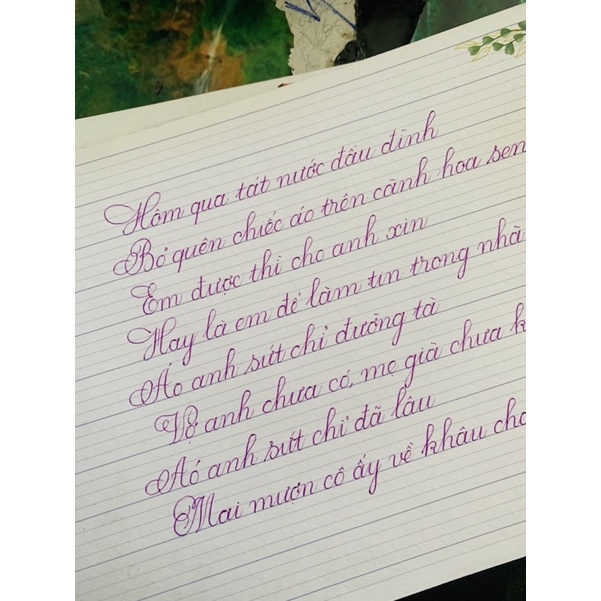 Hôm qua tát nước đầu đình
Bỏ quên chiếc áo trên cành hoa sen
Em được thì cho anh xin
Hay là em để làm tin trong nhà
Áo anh sứt chỉ đường tà
Vợ anh chưa có, mẹ già chưa k
Áo anh sứt chỉ đã lâu
Mai mượn cô ấy về khâu cho